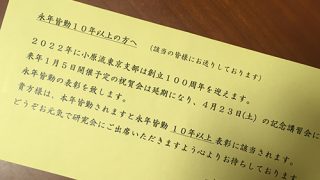 永年皆勤10年以上の方へ (該当の皆様にお送りしております)
2022年に小原流東京支部は創立100周年を迎えます。
来年1月5日開催予定の祝賀会は延期になり、4月23日(土)の記念講習会に
永年皆勤の表彰を致します。
貴方様は、本年皆勤されますと永年皆勤 10年以上 表彰に該当されます。
どうぞお元気で研究会にご出席いただきますよう心よりお待ちしております